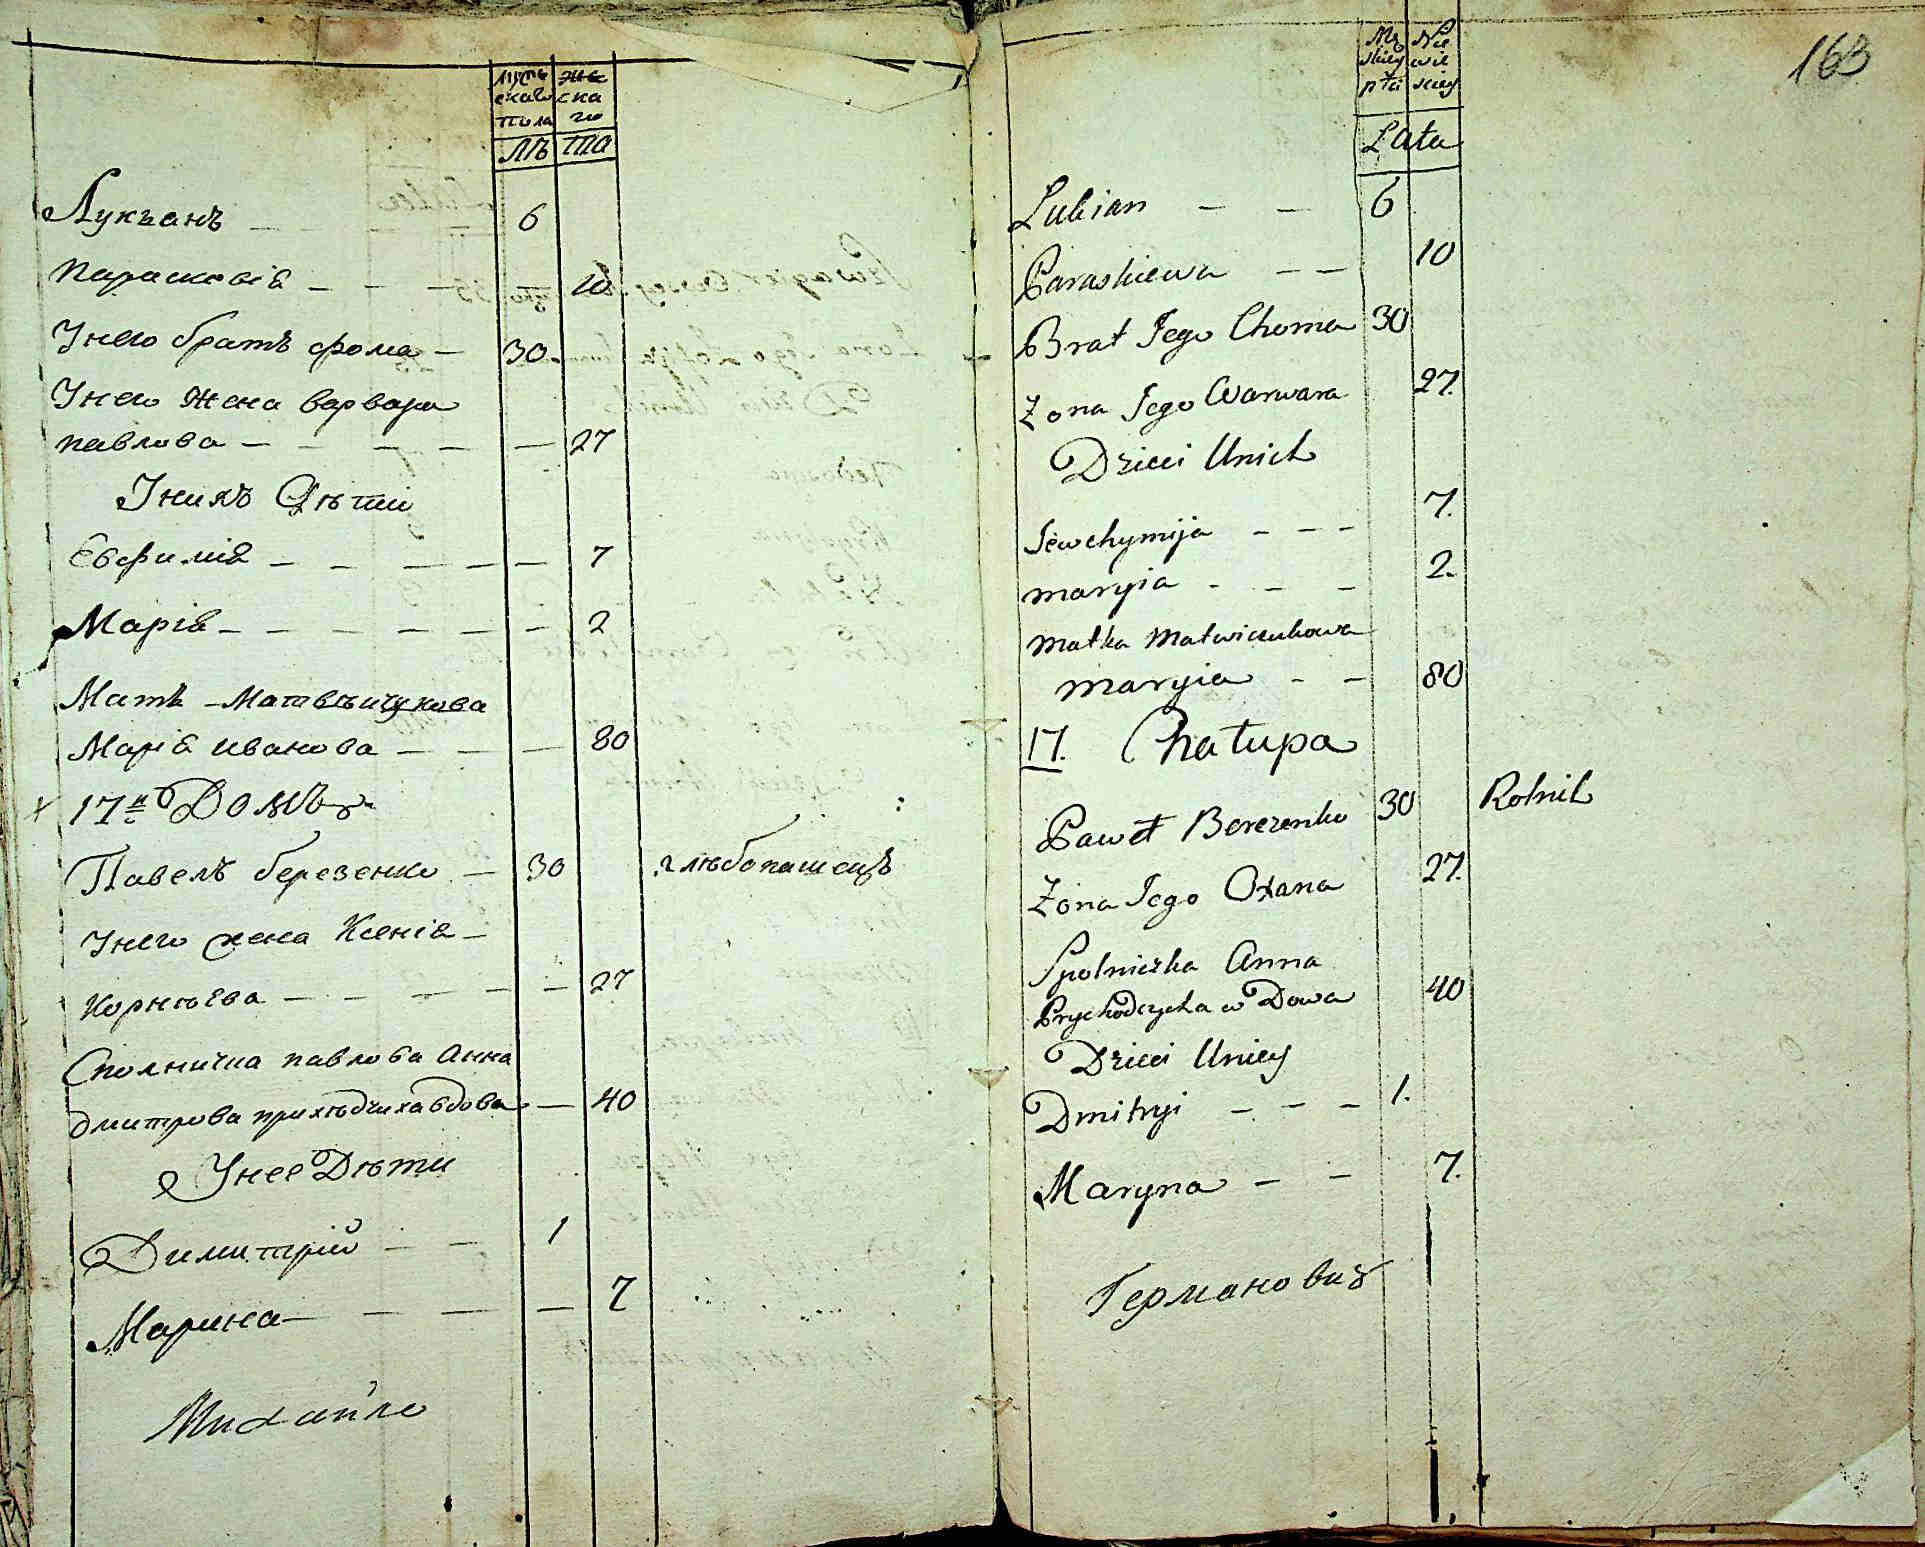 мужскаго пола
женскаго
лѣта
Лукъанъ 6
параскевіѧ 10
Унего братъ фома 30
Унего жена варвара
павлова 27
Унихъ Дѣти
Евфиміѧ 7
Маріѧ 2
Мать Матвѣичукова
Маріѧ иванова 80
17й Домъ
Павелъ березенко 30 хлѣбопашецъ
Унего жена Ксеніѧ
Корнѣева 27
Сполничка павлова Анна
дмитрова приходчиха вдова 40
Унее Дѣти
Димитрій 1
Марина 7
Михайло
163
Męskiey płci
Niewieskiey
Lata
Lukian 6
Paraskiewa 10
Brat Jego Choma 30
Zona Jego Warwara 27.
Dzieci Unich
Jewchymija 7.
maryia 2.
matka Matwieiukowa
maryia 80
17. Chałupa
Paweł Berezenko 30 Rolnik
Zona Jego Oxana 27.
Spolniczka Anna
Prychodczycha wDowa 40
Dzieci Uniey
Dmitryi 1.
Maryna 7.
Германовиз